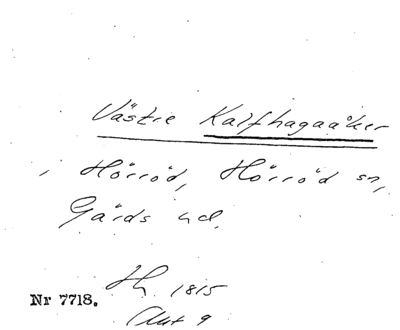 Västre Kalfhagaåker
, Hörröd, Hörröd sn,
Gärds hd.
Hh 1815
Nr 7718.
Akt 9